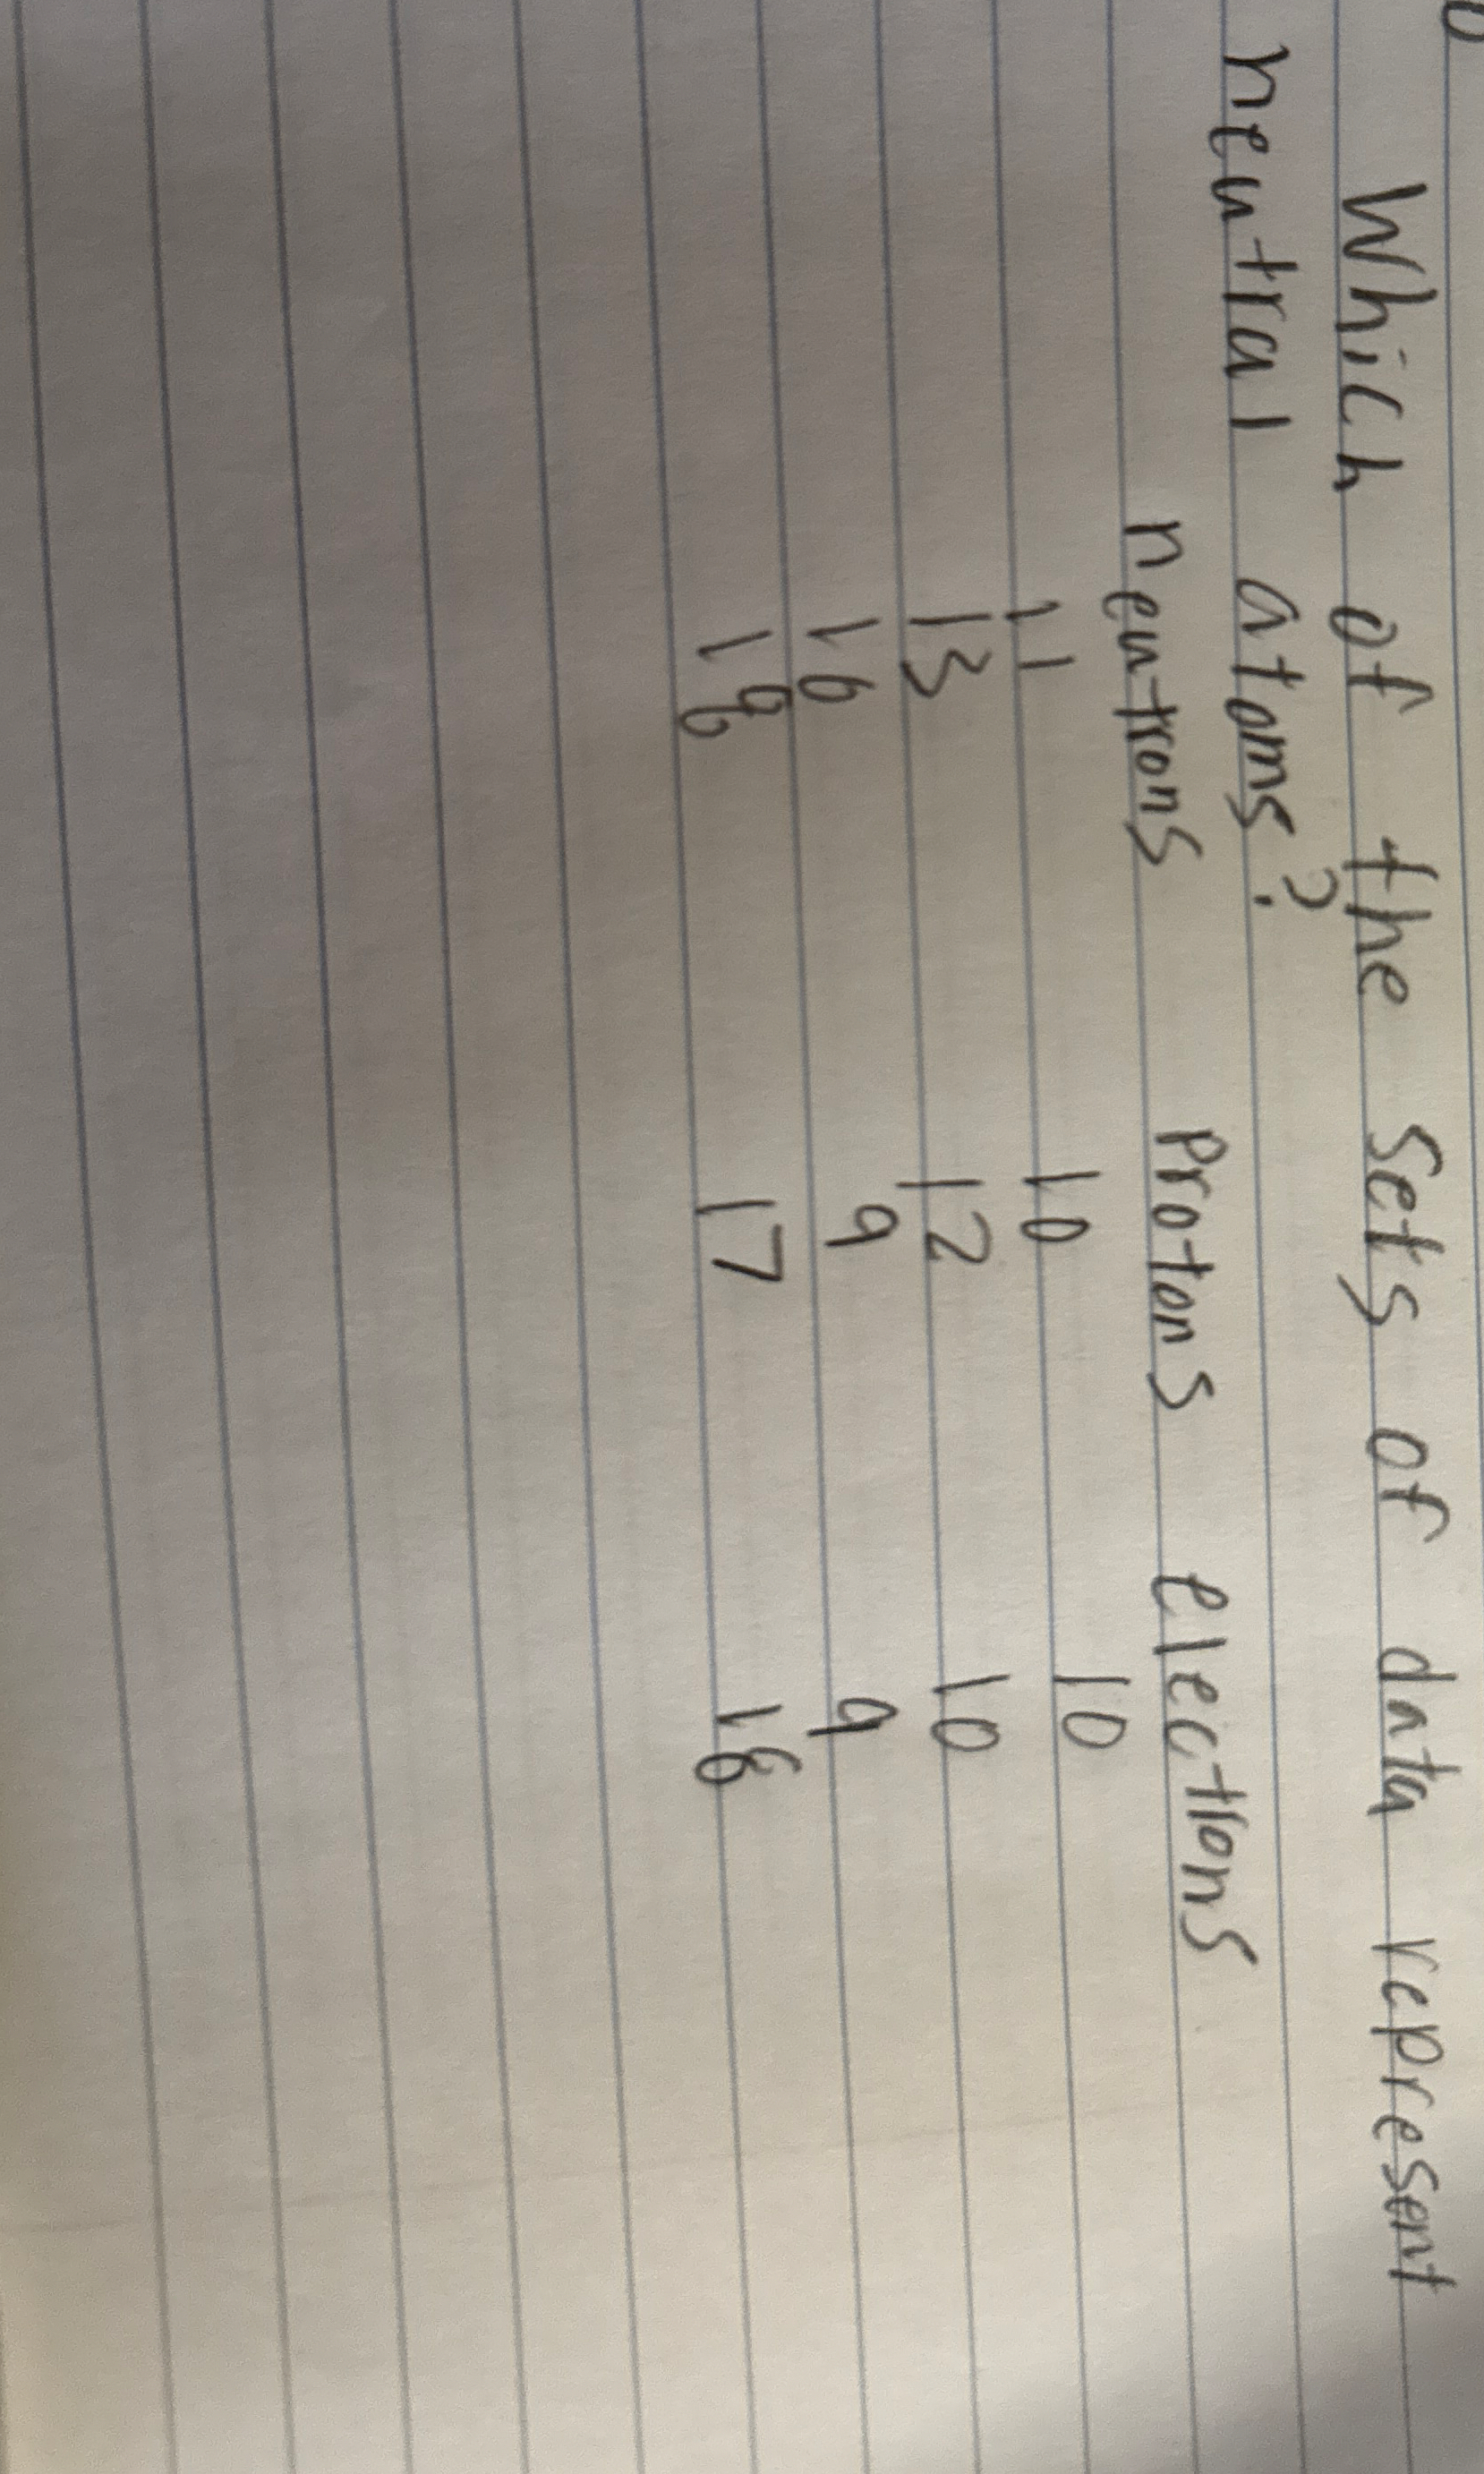 Which of the sets of data represent
neutral atoms?
neutrons protons electrons
11 10 10
13 12 10
16 9 9
18 17 18